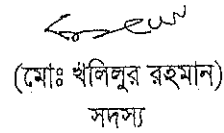 (মোঃ খলিলুর রহমান)
সদস্য